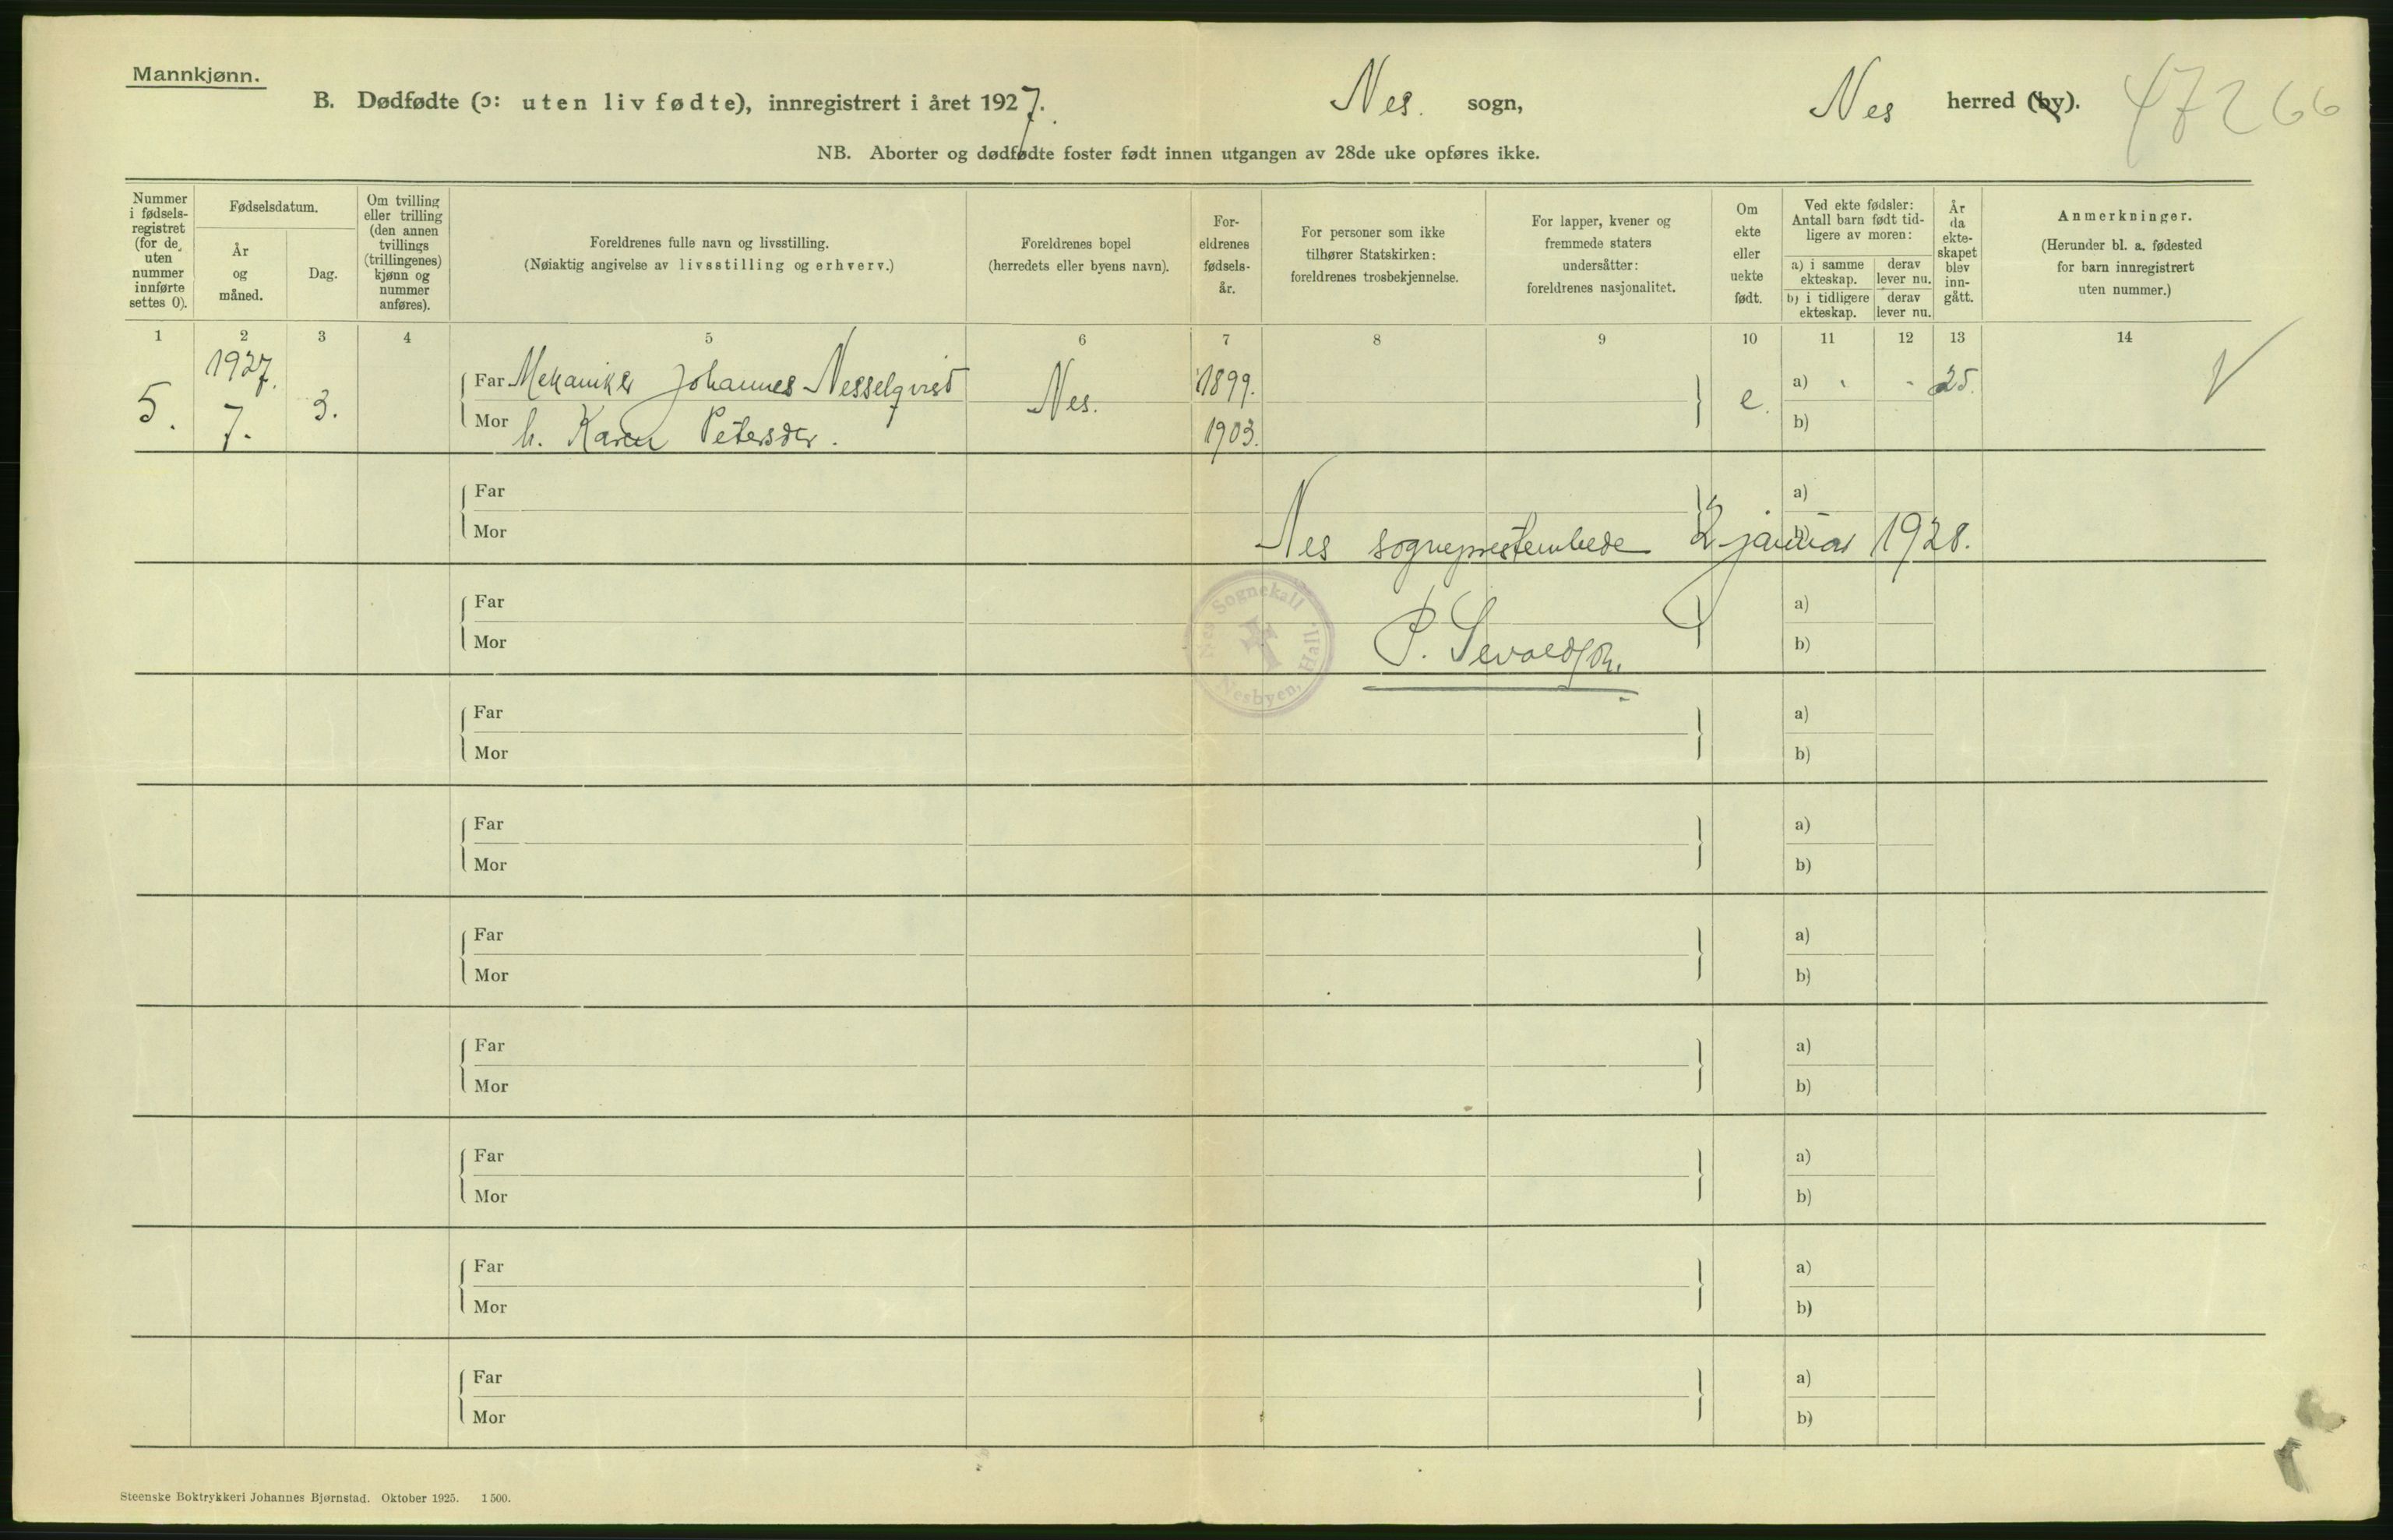 Mannkjønn.
B. Dødfødte (ɔ: uten liv fødte), innregistrert i året 1927. Nes. sogn, Nes herred (by). 47266
NB. Aborter og dødfødte foster født innen utgangen av 28de uke opføres ikke.
Nummer i fødselsregistret (for de uten nummer innførte settes 0).
Fødselsdatum.
År og måned.
Dag.
Om tvilling eller trilling (den annen tvillings (trillingenes) kjønn og nummer anføres).
Foreldrenes fulle navn og livsstilling.
(Nøiaktig angivelse av livsstilling og erhverv.)
Foreldrenes bopel
(herredets eller byens navn).
Foreldrenes fødselsår.
For personer som ikke tilhører Statskirken: foreldrenes trosbekjennelse.
For lapper, kvener og fremmede staters undersåtter: foreldrenes nasjonalitet.
Om ekte eller uekte født.
Ved ekte fødsler: Antall barn født tidligere av moren:
a) i samme ekteskap. derav lever nu.
b) i tidligere ekteskap. derav lever nu.
År da ekteskapet blev inngått.
Anmerkninger.
(Herunder bl. a. fødested for barn innregistrert uten nummer.)
1 2 3 4 5 6 7 8 9 10 11 12 13 14
5. 1927. 7. 3. Far Mekaniker Johannes Nesselqvist Nes. 1899. e. a) - 25.
Mor h. Karen Petersdtr. 1903. b)
Far a)
Mor b)
Nes sogneprestembede 2 januar 1928.
Far a)
Mor b)
Nes Sognekall
Nesbyen, Hall.
P. Sevaldson.
Far a)
Mor b)
Far a)
Mor b)
Far a)
Mor b)
Far a)
Mor b)
Far a)
Mor b)
Far a)
Mor b)
Far a)
Mor b)
Steenske Boktrykkeri Johannes Bjørnstad. Oktober 1925. 1500.